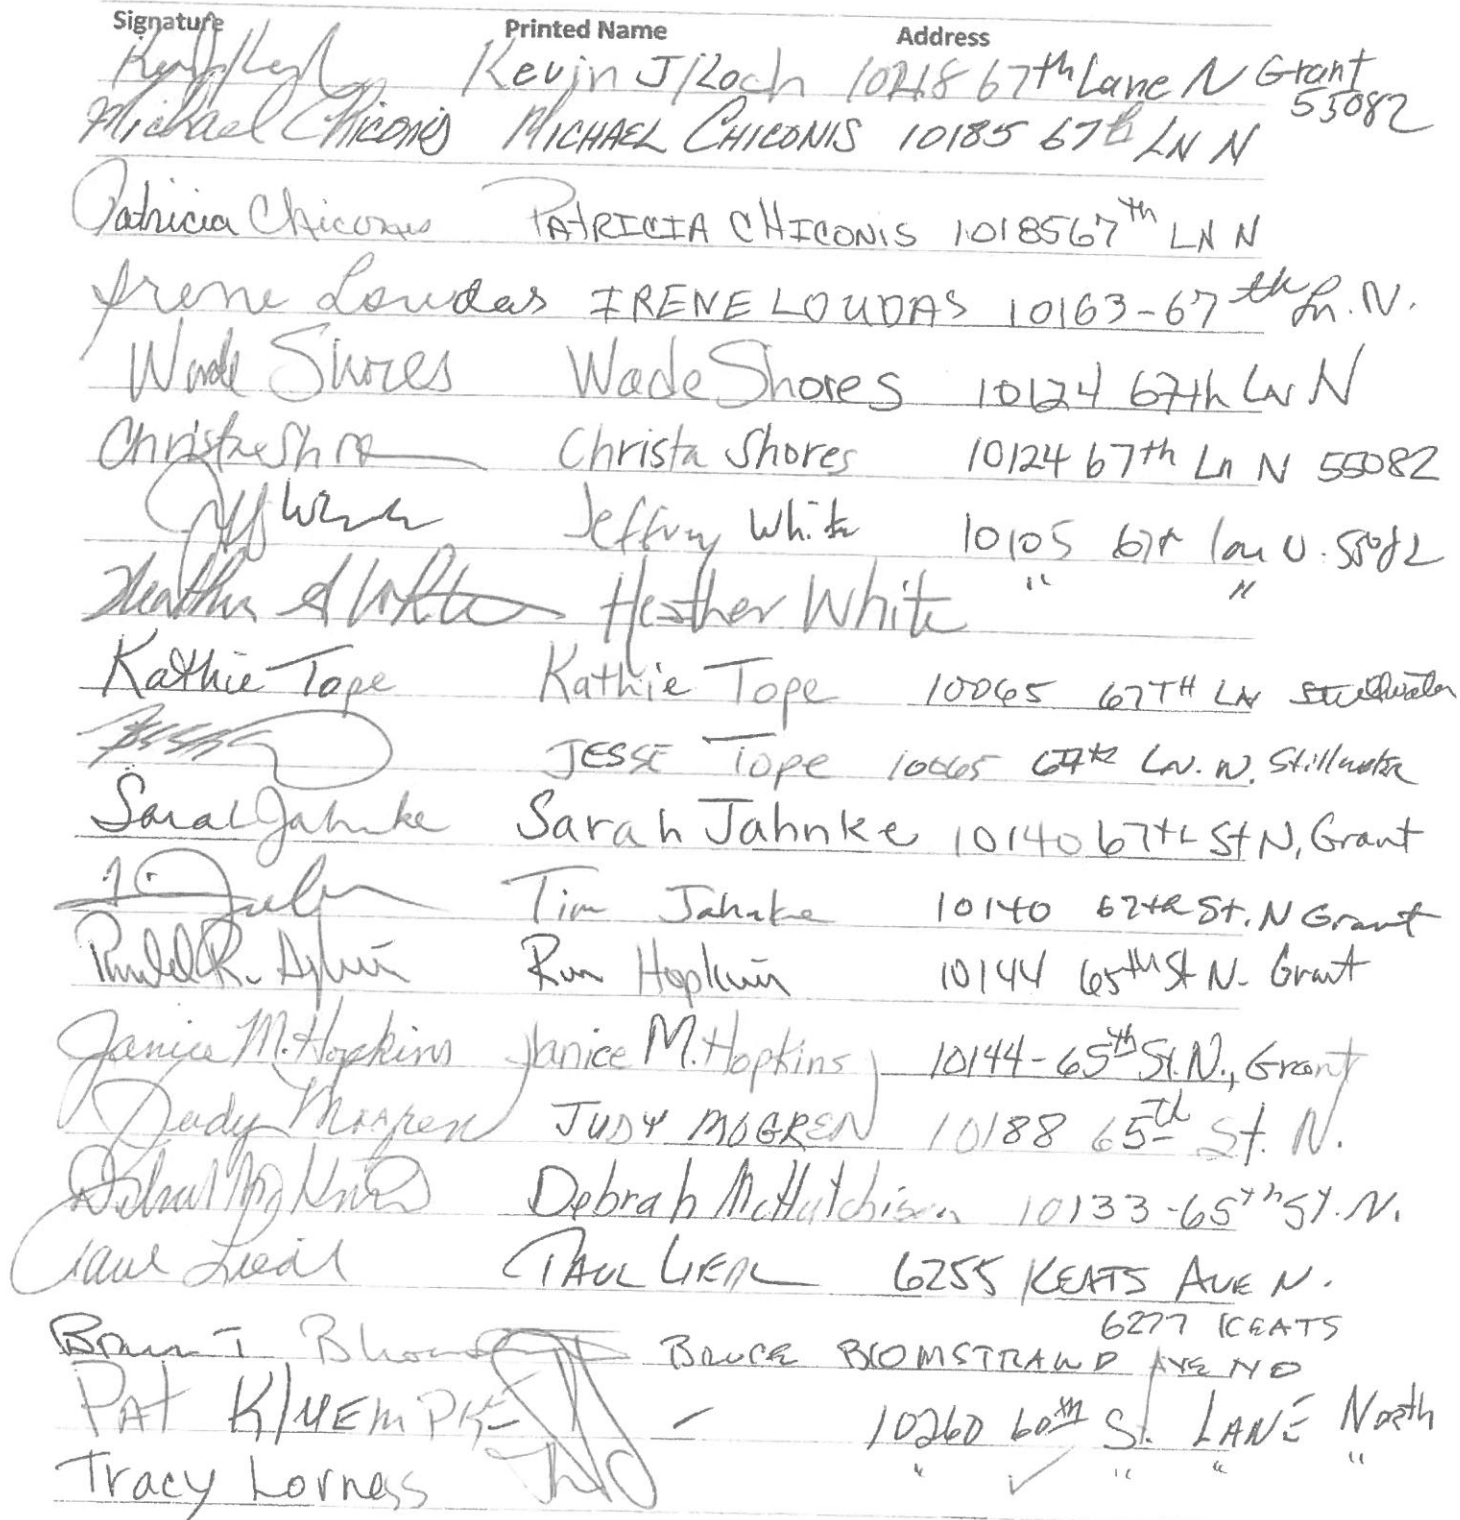 Signature Printed Name Address
Kevin J Koch 10218 67th Lane N Grant
55082
Michael Chiconis MICHAEL CHICONIS 10185 67th LN N
Patricia Chiconis PATRICIA CHICONIS 10185 67th LN N
Irene Loudas IRENE LOUDAS 10163-67th Ln. N.
Wade Shores Wade Shores 10124 67th LN N
Christa Shores 10124 67th Ln N 55082
Jeff White Jeffrey White 10105 67th N. 55082
Heather A White Heather White " "
Kathie Tope Kathie Tope 10065 67TH LN Stillwater
JESSE Tope 10065 67th LN. N. Stillwater
Sarah Jahnke Sarah Jahnke 10140 67th St N, Grant
Tim Jahnke 10140 67th St. N Grant
Ronald R. Hopkins 10144 65th St N. Grant
Janice M. Hopkins Janice M. Hopkins 10144-65th St. N., Grant
Judy Mogren JUDY MOGREN 10188 65th St. N.
Debrah McHutchison 10133-65th St. N.
Paul Liedl PAUL 6255 KEATS AVE N.
6277 KEATS
BRUCE BLOMSTRAND AVE NO
PAT KLUEMPKE - 10260 60th St. LANE North
Tracy Lorness " " " "